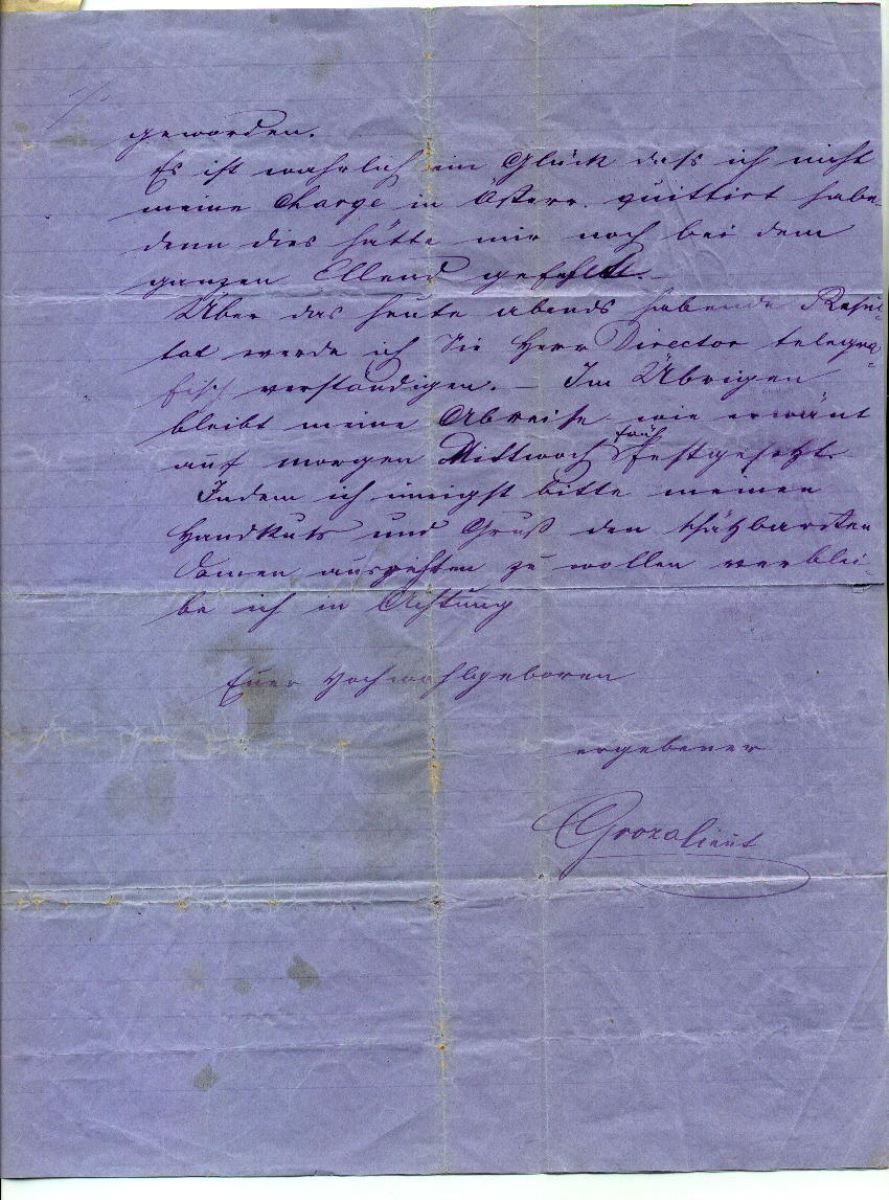 geworden.
Es ist wahrlich ein Glück dass ich nicht
meine Charge in Österr. quittirt habe
denn dies hätte mir noch bei dem
ganzen Ellend gefehlt. —
Über das heute abends habende Resul-
tat werde ich Sie Herr Director telegra-
fisch verständigen. — Im Übrigen
bleibt meine Abreise wie erwänt
auf morgen Mittwoch früh festgesetzt.
Indem ich innigst bitte meinen
Handkuss und Gruß den schätzbarsten
Damen ausrichten zu wollen verblei-
be ich in Achtung
Euer Hochwohlgeboren
ergebener
Groza Lieut